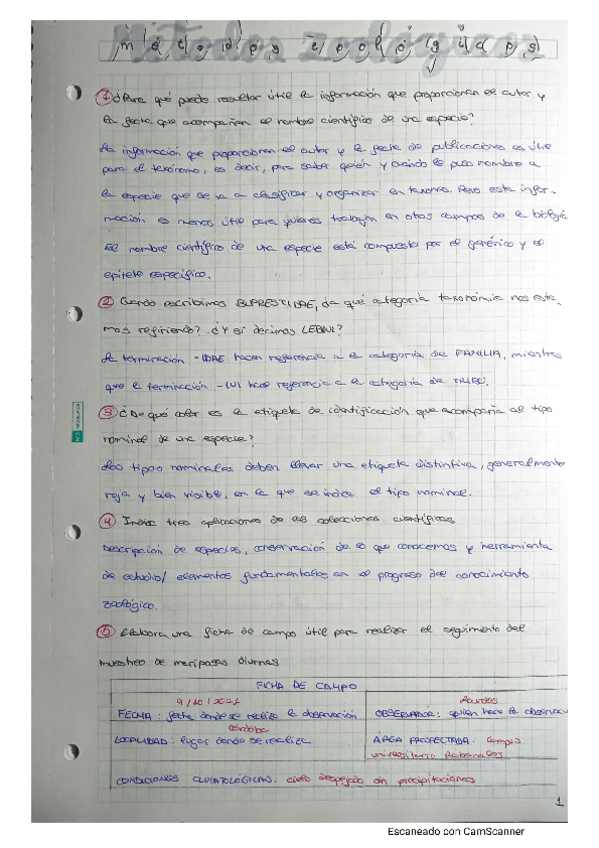 Métodos zoológicos
① ¿Para qué puede resultar útil la información que proporcionan el autor y
la fecha que acompañan el nombre científico de una especie?
La información que proporcionan el autor y la fecha de publicaciones es útil
para el taxónomo, es decir, para saber quién y cuándo le puso nombre a
la especie que se va a clasificar y organizar en taxones. Pero esta infor-
mación es menos útil para quienes trabajan en otros campos de la biología
El nombre científico de una especie está compuesto por el genérico y el
epíteto específico.
② Cuando escribimos BUPRESTIDAE, ¿a qué categoría taxonómica nos esta-
mos refiriendo? ¿Y si decimos
La terminación -IDAE hacen referencia a la categoría de FAMILIA, mientras
que la terminación -INI hace referencia a la categoría de TRIBU.
③ ¿De qué color es la etiqueta de identificación que acompaña al tipo
nominal de una especie?
Los tipos nominales deben llevar una etiqueta distintiva, generalmente
roja y bien visible, en la que se indica el tipo nominal.
④ Indica tres aplicaciones de las colecciones científicas
Descripción de especies, conservación de lo que conocemos y herramienta
de estudio/ elementos fundamentales en el progreso del conocimiento
zoológico.
⑤ Elabora una ficha de campo útil para realizar el seguimiento del
muestreo de mariposas diurnas
FICHA DE CAMPO
FECHA: fecha donde se realiza la observación
OBSERVADOR: quien hace la observac
Lourdes
Córdoba
LOCALIDAD: lugar donde se realiza
ÁREA PROSPECTADA: campus
universitario Rabanales
CONDICIONES CLIMATOLÓGICAS: cielo despejado sin precipitaciones
1
Escaneado con CamScanner